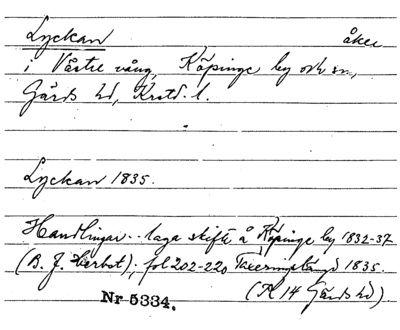 Lyckan åker
i Västre vång, Köpinge by och sn,
Gärds hd, Krstd. l.
Lyckan 1835.
Handlingar .. laga skifte å Köpinge by 1832-37
(B. J. Herbst); fol 202-220 1835.
(K 14 Gärds hd).
Nr 5334.